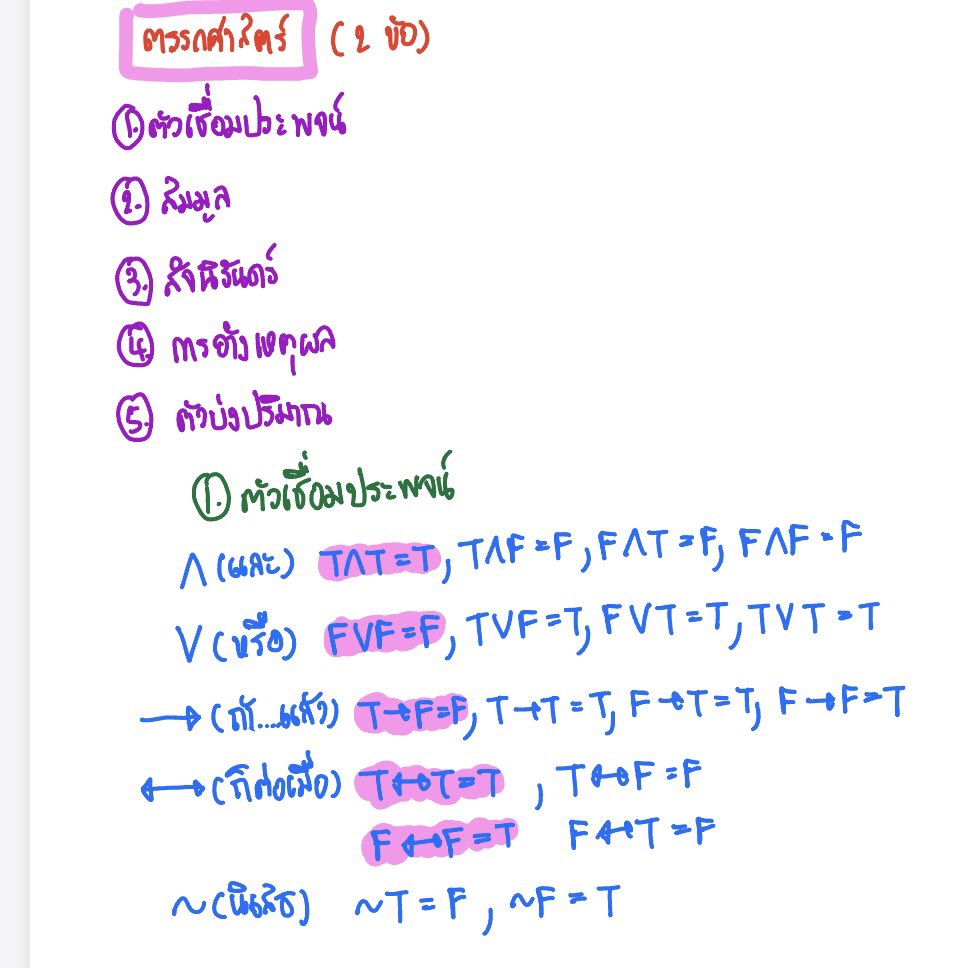 ตรรกศาสตร์ (2 ข้อ)
①. ตัวเชื่อมประพจน์
②. สมมูล
③. สัจนิรันดร์
④. การอ้างเหตุผล
⑤. ตัวบ่งปริมาณ
①. ตัวเชื่อมประพจน์
∧ (และ) T∧T = T, T∧F = F, F∧T = F, F∧F = F
∨ (หรือ) F∨F = F, T∨F = T, F∨T = T, T∨T = T
→ (ถ้า....แล้ว) T→F = F, T→T = T, F→T = T, F→F = T
↔ (ก็ต่อเมื่อ) T↔T = T , T↔F = F
F↔F = T F↔T = F
~ (นิเสธ) ~T = F , ~F = T